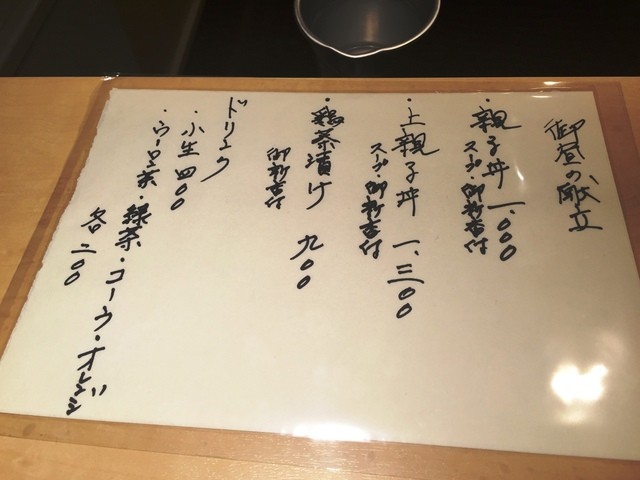 御昼の献立
・親子丼 一、000
スープ・御新香付
・上親子丼 一、三00
スープ・御新香付
・鶏茶漬け 九00
御新香付
ドリンク
・小生 四00
・ウーロン茶・緑茶・コーラ・オレンジ
各二00